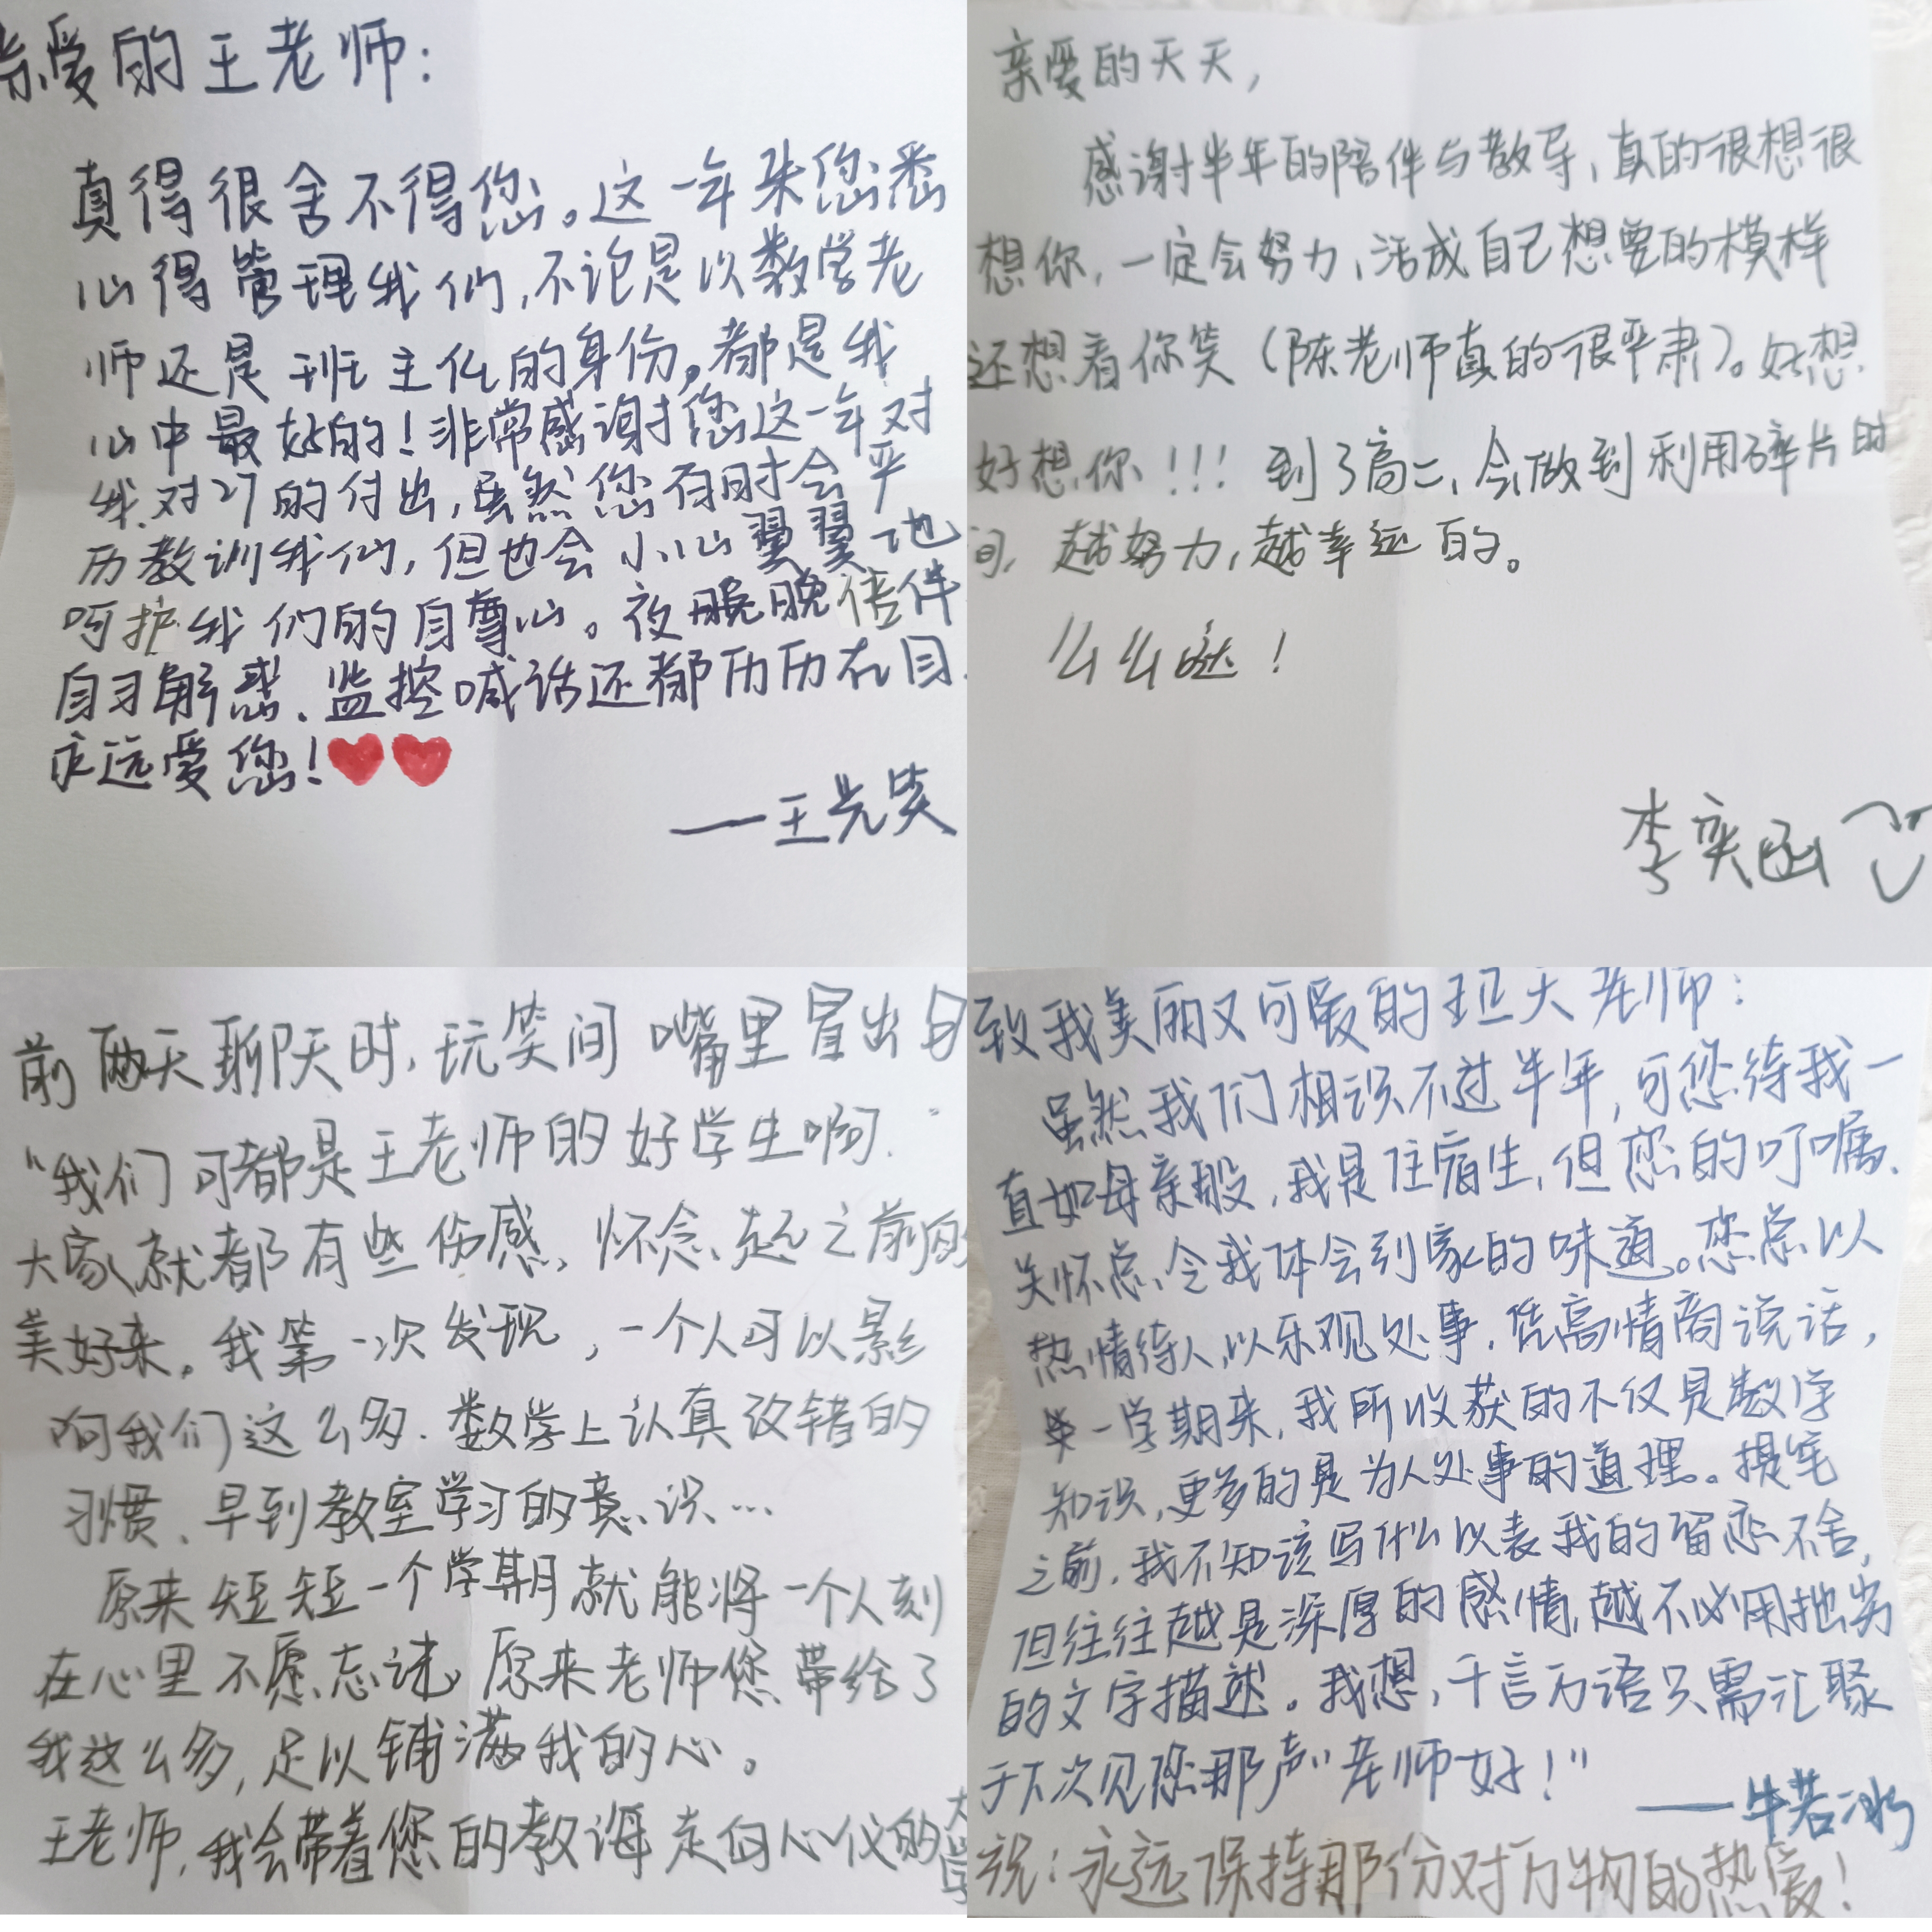 亲爱的王老师：
真得很舍不得您。这一年来您悉
心得管理我们,不论是以数学老
师还是班主任的身份,都是我
心中最好的！非常感谢您这一年对
我对27的付出,虽然您有时会严
历教训我们,但也会小心翼翼地
呵护我们的自尊心。夜晚晚倍伴
自习解惑、监控喊话还都历历在目.
永远爱您！
——王先笑
亲爱的天天，
感谢半年的陪伴与教导,真的很想很
想你,一定会努力,活成自己想要的模样
还想看你笑（陈老师真的很严肃）。好想
好想你！！！到了高二,会做到利用碎片时
间,越努力,越幸运的。
么么哒！
李奕函
前两天聊天时,玩笑间嘴里冒出
“我们可都是王老师的好学生啊.”
大家就都有些伤感,怀念起之前的
美好来。我第一次发现,一个人可以影
响我们这么多.数学上认真改错的
习惯、早到教室学习的意识…
原来短短一个学期就能将一个人刻
在心里不愿忘记,原来老师您带给了
我这么多,足以铺满我的心。
王老师,我会带着您的教诲走向心仪的大学
致我美丽又可爱的王天老师：
虽然我们相识不过半年,可您待我一
直如母亲般,我是住宿生,但您的叮嘱、
关怀总令我体会到家的味道。您总以
热情待人,以乐观处事,凭高情商说话,
一学期来,我所收获的不仅是数学
知识,更多的是为人处事的道理。提笔
之前,我不知该写什么以表我的留恋不舍,
但往往越是深厚的感情,越不必用拙劣
的文字描述。我想,千言万语只需汇聚
于下次见您那声“老师好！”
——牛若冰
祝：永远保持那份对万物的热爱！